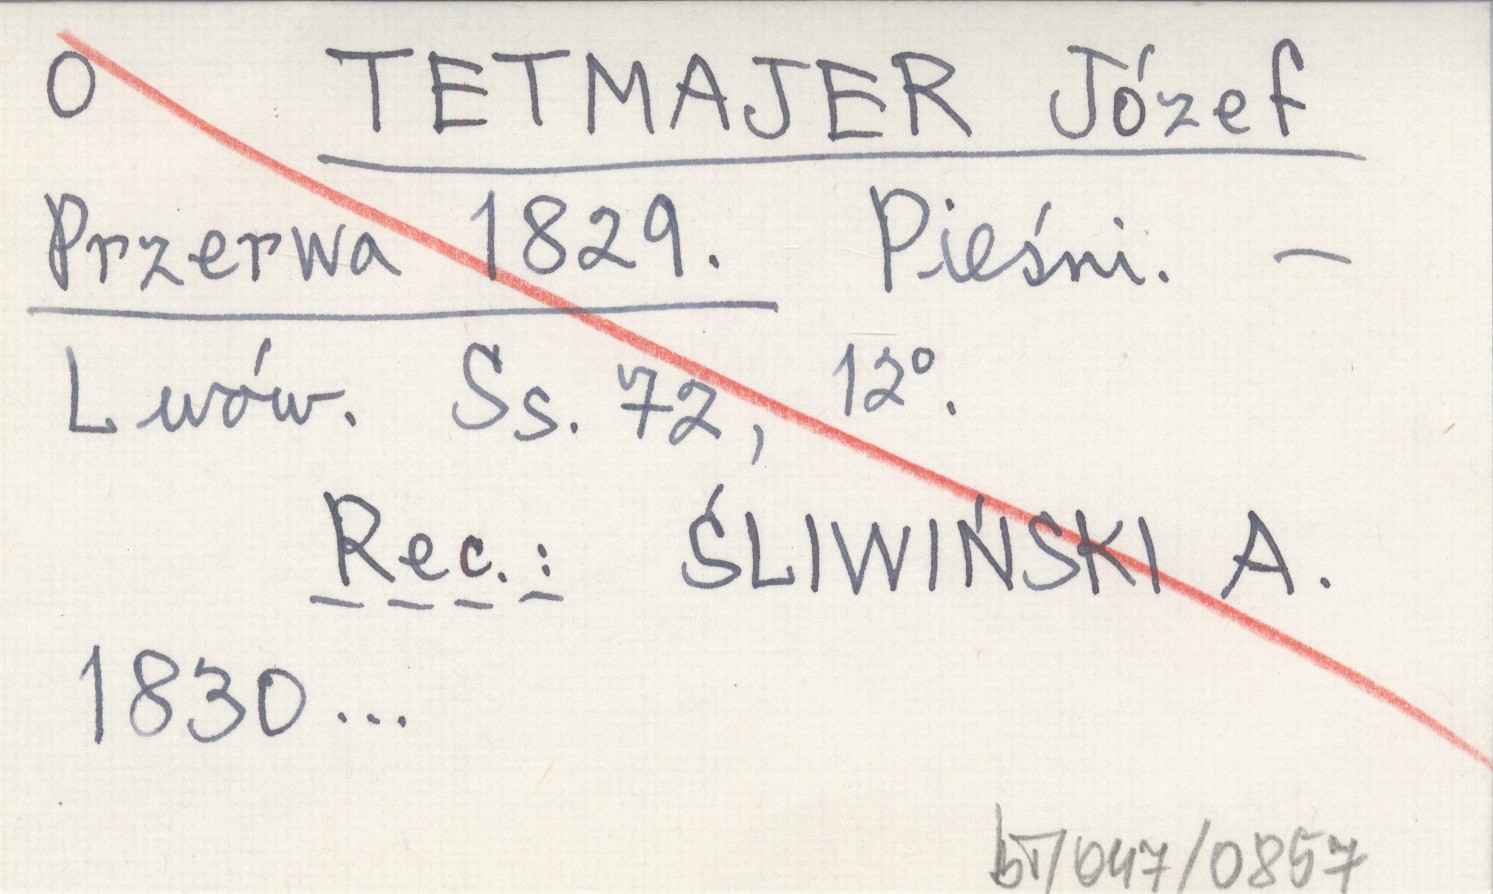 O TETMAJER Józef
Przerwa 1829. Pieśni. –
Lwów. Ss. 72, 12°.
Rec.: ŚLIWIŃSKI A.
1830...
bT/047/0857